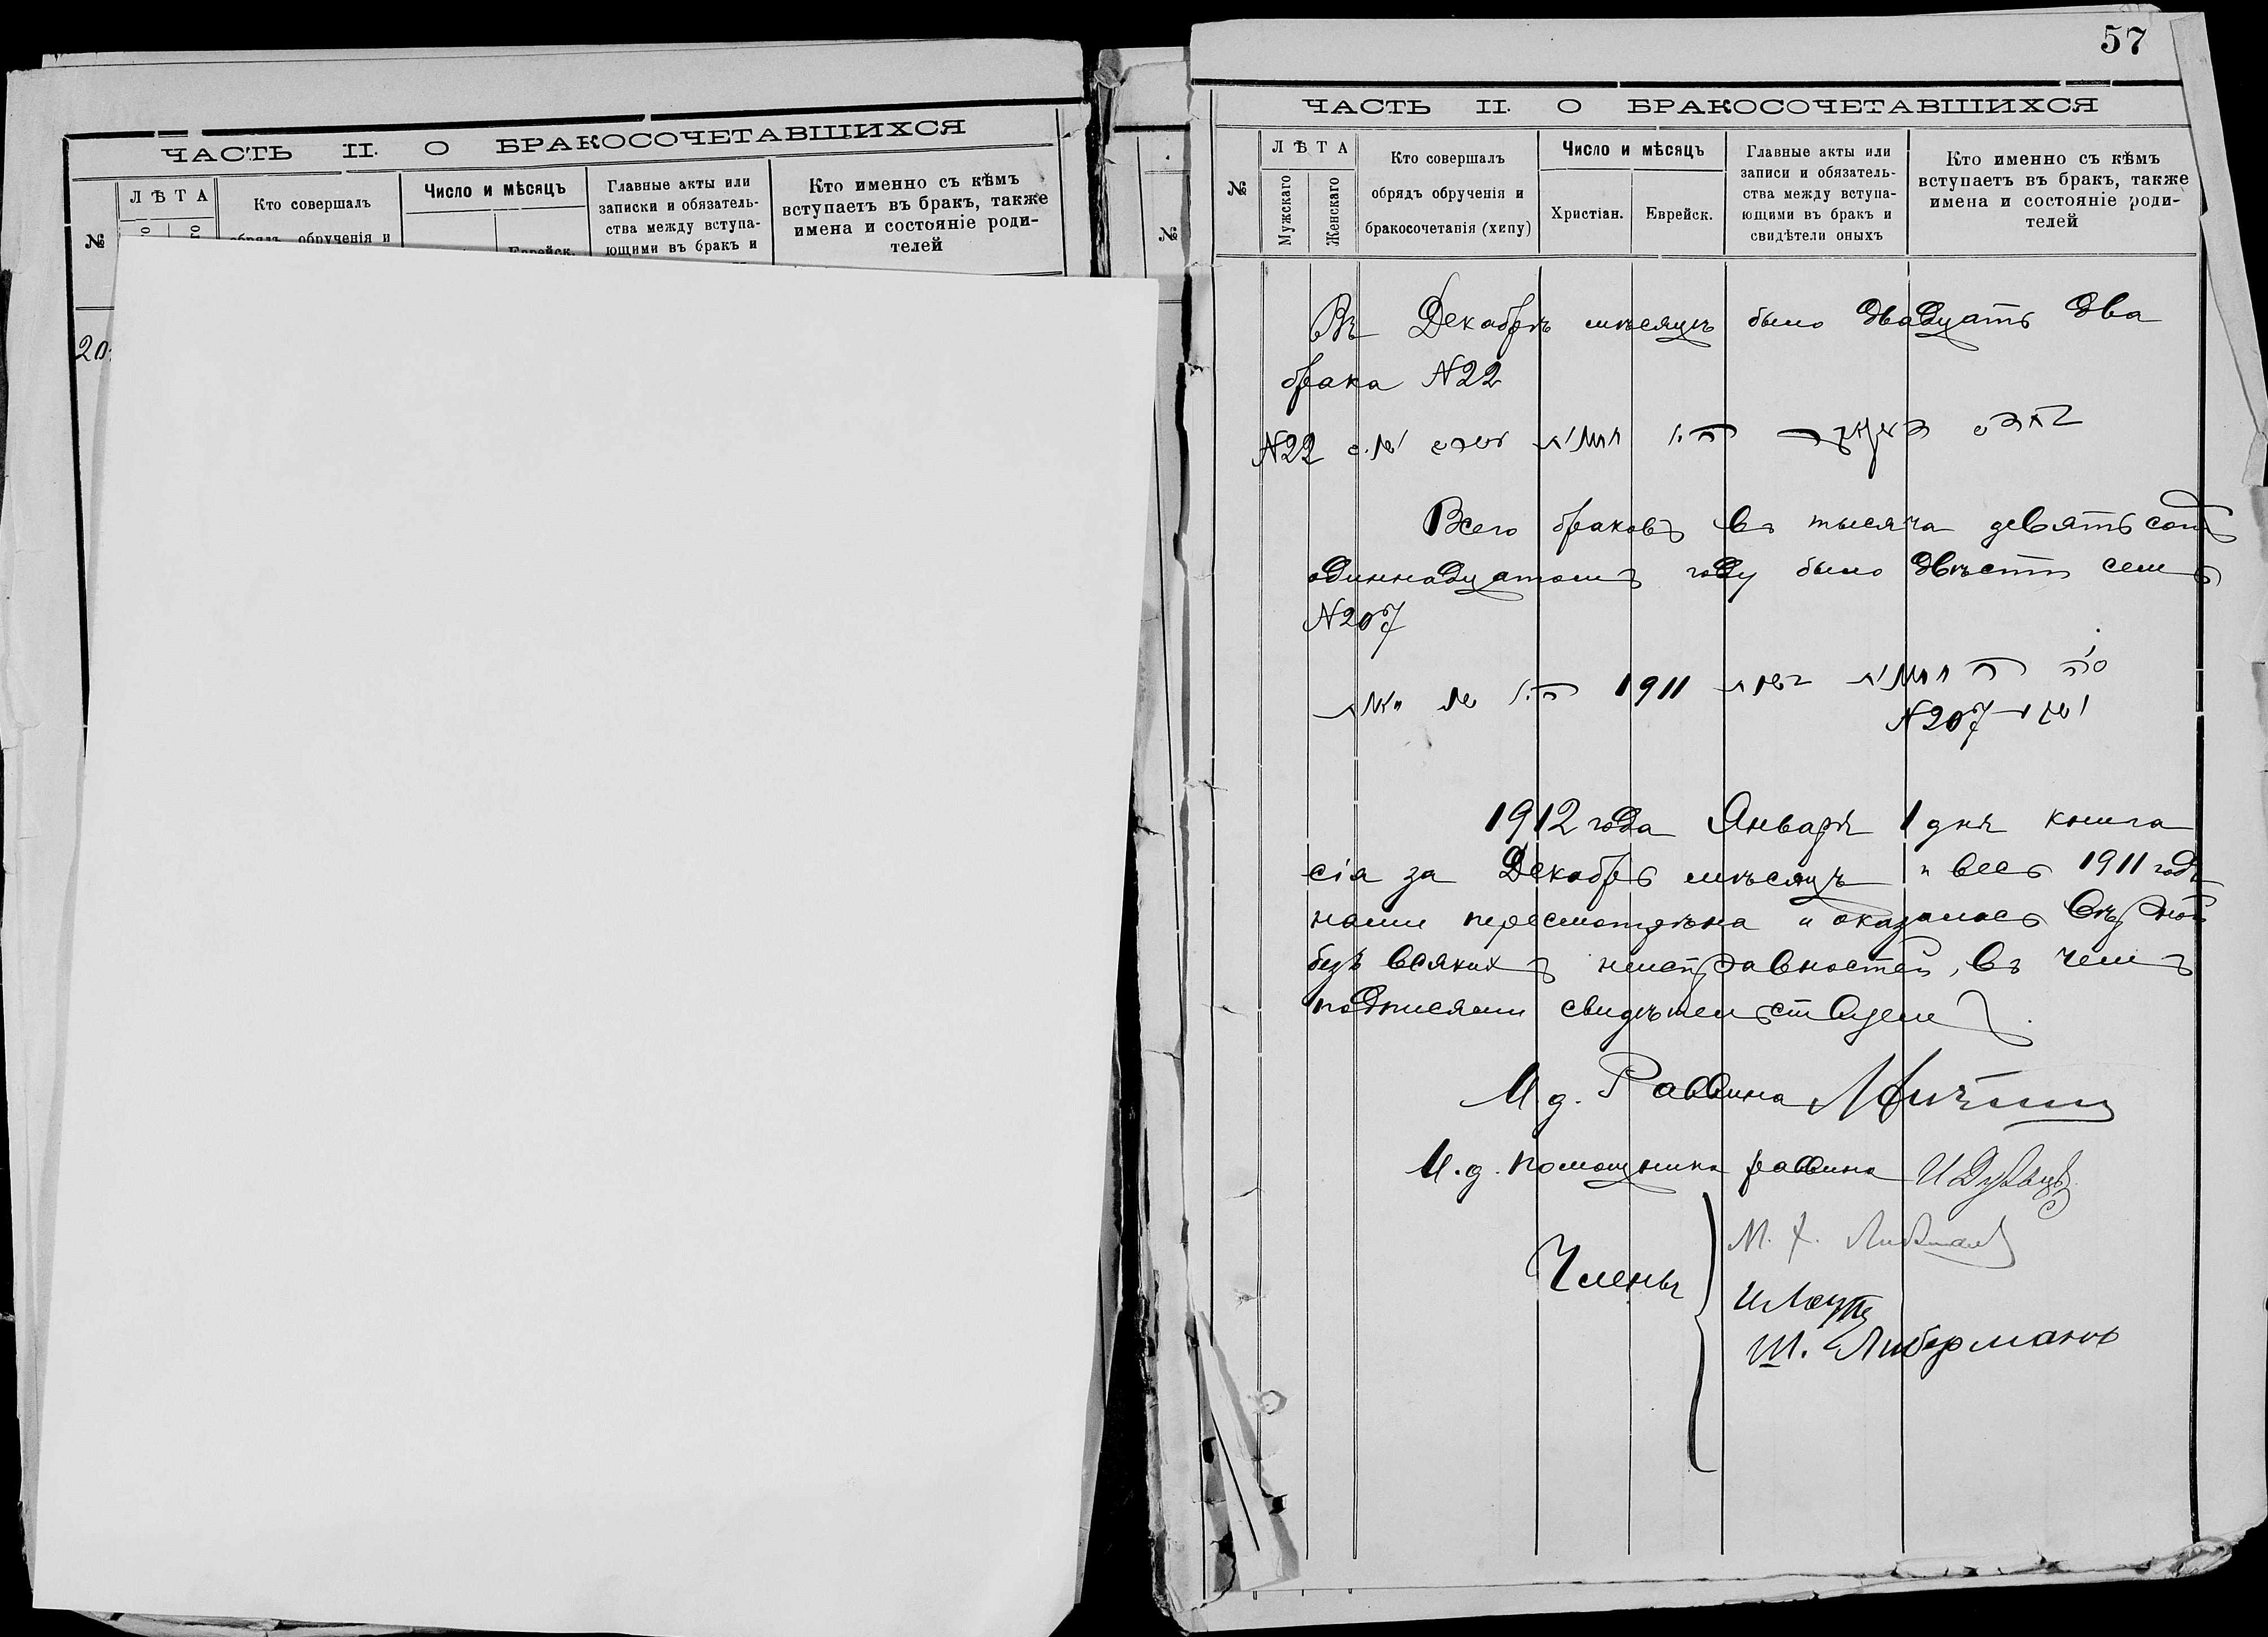 ЧАСТЬ II. О БРАКОСОЧЕТАВШИХСЯ
№
ЛѢТА
Кто совершалъ
обрядъ обрученія и
Число и мѣсяцъ
Еврейск.
Главные акты или
записки и обязатель-
ства между вступа-
ющими въ бракъ и
Кто именно съ кѣмъ
вступаетъ въ бракъ, также
имена и состояніе роди-
телей
20
№
57
ЧАСТЬ II. О БРАКОСОЧЕТАВШИХСЯ
№
ЛѢТА
Мужскаго
Женскаго
Кто совершалъ
обрядъ обрученія и
бракосочетанія (хипу)
Число и мѣсяцъ
Христіан.
Еврейск.
Главные акты или
записи и обязатель-
ства между вступа-
ющими въ бракъ и
свидѣтели оныхъ
Кто именно съ кѣмъ
вступаетъ въ бракъ, также
имена и состояніе роди-
телей
Въ Декабрѣ мѣсяцѣ было двадцать два
брака N22
N22
Всего браковъ въ тысяча девятьсотъ
одиннадцатомъ году было двѣсти семь
N207
1911
N207
1912 года Января 1 дня книга
сія за Декабрь мѣсяцъ и весь 1911 годъ
нами пересмотрѣна и оказалась вѣрной
безъ всякихъ неисправностей, въ чемъ
подписями свидѣтельствуемъ.
И.д. Раввина
И.д. помощника раввина
Члены
Ш. Либерманъ